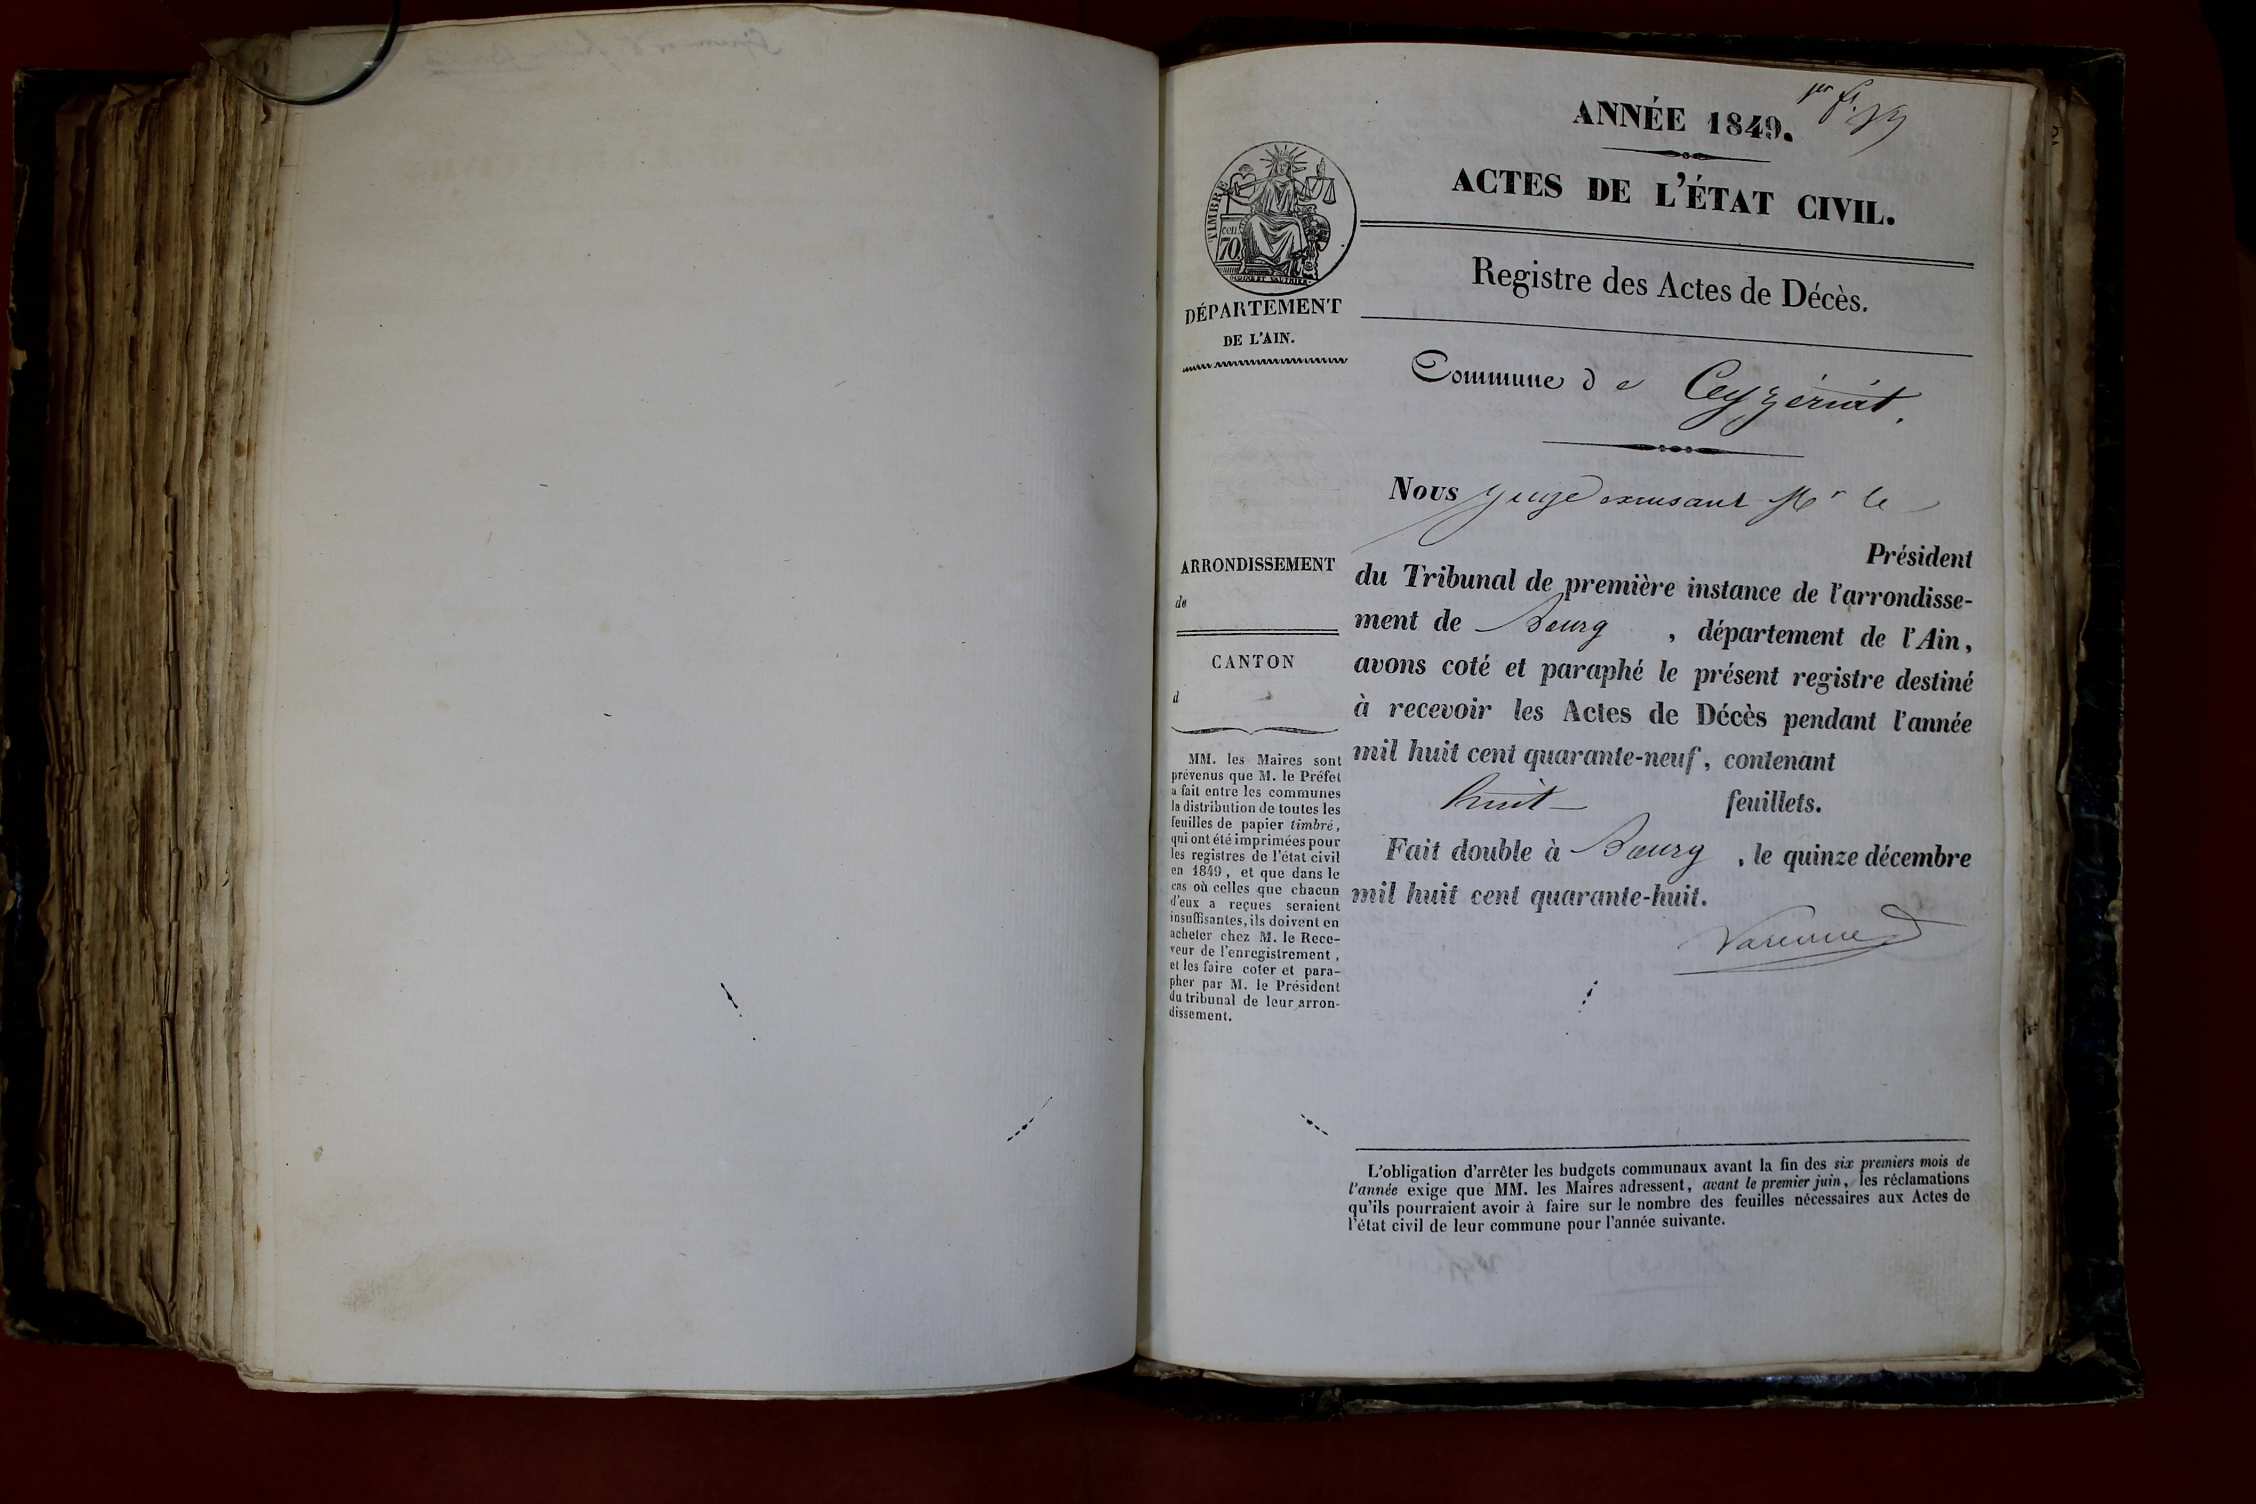 ANNÉE 1849.
1er f.
ACTES DE L'ÉTAT CIVIL.
TIMBRE
cen.
70.
DÉPARTEMENT
DE L'AIN.
Registre des Actes de Décès.
Commune de Ceyzériat.
Nous Juge excusant Mr le
Président
du Tribunal de première instance de l'arrondisse-
ment de Bourg, département de l'Ain,
avons coté et paraphé le présent registre destiné
à recevoir les Actes de Décès pendant l'année
mil huit cent quarante-neuf, contenant
huit feuillets.
Fait double à Bourg, le quinze décembre
mil huit cent quarante-huit.
ARRONDISSEMENT
de
CANTON
d
MM. les Maires sont
prévenus que M. le Préfet
a fait entre les communes
la distribution de toutes les
feuilles de papier timbré,
qui ont été imprimées pour
les registres de l'état civil
en 1849, et que dans le
cas où celles que chacun
d'eux a reçues seraient
insuffisantes, ils doivent en
acheter chez M. le Rece-
veur de l'enregistrement,
et les faire coter et para-
pher par M. le Président
du tribunal de leur arron-
dissement.
L'obligation d'arrêter les budgets communaux avant la fin des six premiers mois de
l'année exige que MM. les Maires adressent, avant le premier juin, les réclamations
qu'ils pourraient avoir à faire sur le nombre des feuilles nécessaires aux Actes de
l'état civil de leur commune pour l'année suivante.